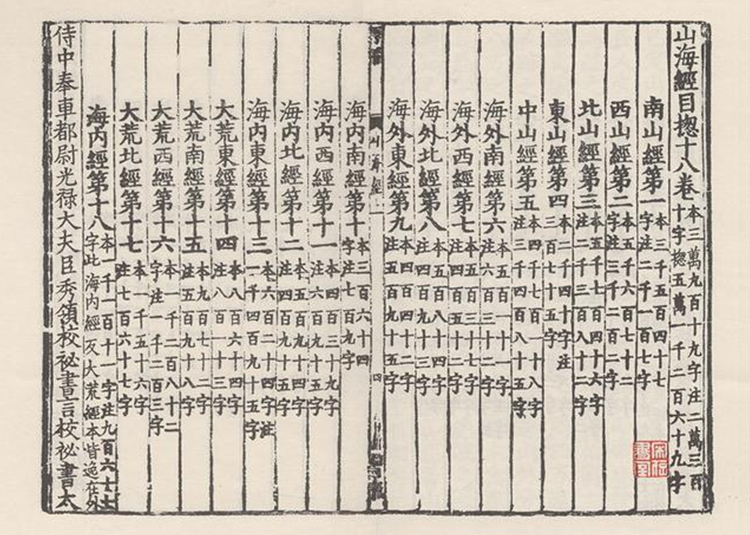 山海經目揔十八卷 本三萬九百十九字注二萬三百十字揔五萬一千二百六十九字
南山經第一 本三千五百四十七字注二千一百七字
西山經第二 本五千六百七十二字注三千二百七十二字
北山經第三 本五千七百四十六字注二千三百八十二字
東山經第四 本二千四十字注三百七十五字
中山經第五 本四千七百一十八字注三千四百八十五字
海外南經第六 本五百一十一字注六百二十二字
海外西經第七 本五百三十七字注四百五十二字
海外北經第八 本五百八十四字注四百九十三字
海外東經第九 本四百四十字注五百九十五字
海內南經第十 本三百六十四字注七百九字
海內西經第十一 本四百三十九字注六百九十五字
海內北經第十二 本五百九十四字注四百九十五字
海內東經第十三 本六百二十四字注一千四百九十五字
大荒東經第十四 本八百六十四字注八百一十三字
大荒南經第十五 本九百七十二字注五百九十八字
大荒西經第十六 本一千二百八十二字注一千二百三字
大荒北經第十七 本一千五十六字注七百六十七字
海內經第十八 本一千一百十一字注九百六十七字此海內經及大荒經本皆逸在外
侍中奉車都尉光祿大夫臣秀領校祕書言校祕書太